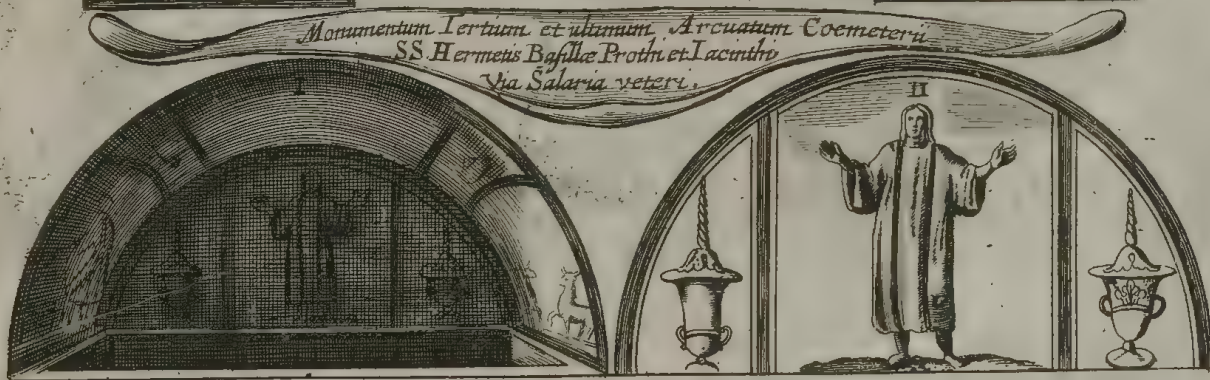 Monumentum Tertium et ultimum Arcuatum Coemeterii
SS Hermetis Basillæ Prothi et Iacinthi
Via Salaria veteri.
I
II